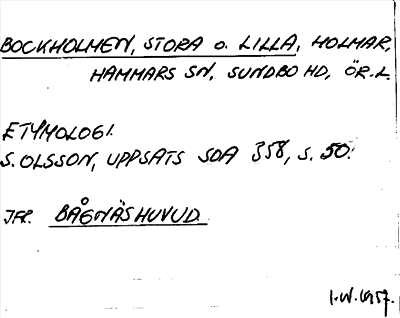 BOCKHOLMEN, STORA o. LILLA, HOLMAR,
HAMMARS SN, SUNDBO HD, ÖR.L.
ETYMOLOGI.
S. OLSSON, UPPSATS SOA 358, S. 50.
JFR. BÅGNÄSHUVUD
I.W. 1957.